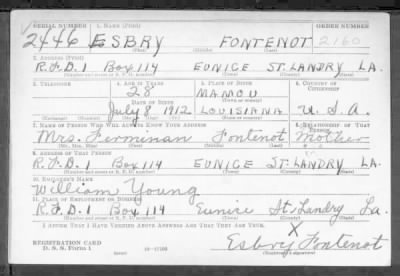 SERIAL NUMBER 1. NAME (Print) ORDER NUMBER
2446 ESBRY FONTENOT 2160
(First) (Middle) (Last)
2. ADDRESS (Print)
R.F.D. 1 Box 114 EUNICE ST. LANDRY LA.
(Number and street or R. F. D. number) (Town) (County) (State)
3. TELEPHONE 4. AGE IN YEARS 5. PLACE OF BIRTH 6. COUNTRY OF CITIZENSHIP
28 MAMOU
DATE OF BIRTH (Town or county)
July 8 1912 LOUISIANA U.S.A.
(Exchange) (Number) (Mo.) (Day) (Yr.) (State or country)
7. NAME OF PERSON WHO WILL ALWAYS KNOW YOUR ADDRESS 8. RELATIONSHIP OF THAT PERSON
Mrs. Ferminan Fontenot Mother
(Mr., Mrs., Miss) (First) (Middle) (Last)
9. ADDRESS OF THAT PERSON
R.F.D. 1 Box 114 EUNICE ST. LANDRY LA.
(Number and street or R. F. D. number) (Town) (County) (State)
10. EMPLOYER'S NAME
William Young
11. PLACE OF EMPLOYMENT OR BUSINESS
R.F.D. 1 Box 114 Eunice St. Landry La.
(Number and street or R. F. D. number) (Town) (County) (State)
I AFFIRM THAT I HAVE VERIFIED ABOVE ANSWERS AND THAT THEY ARE TRUE.
REGISTRATION CARD X
D. S. S. Form 1 16-17105 Esbry Fontenot
(Registrant's signature)